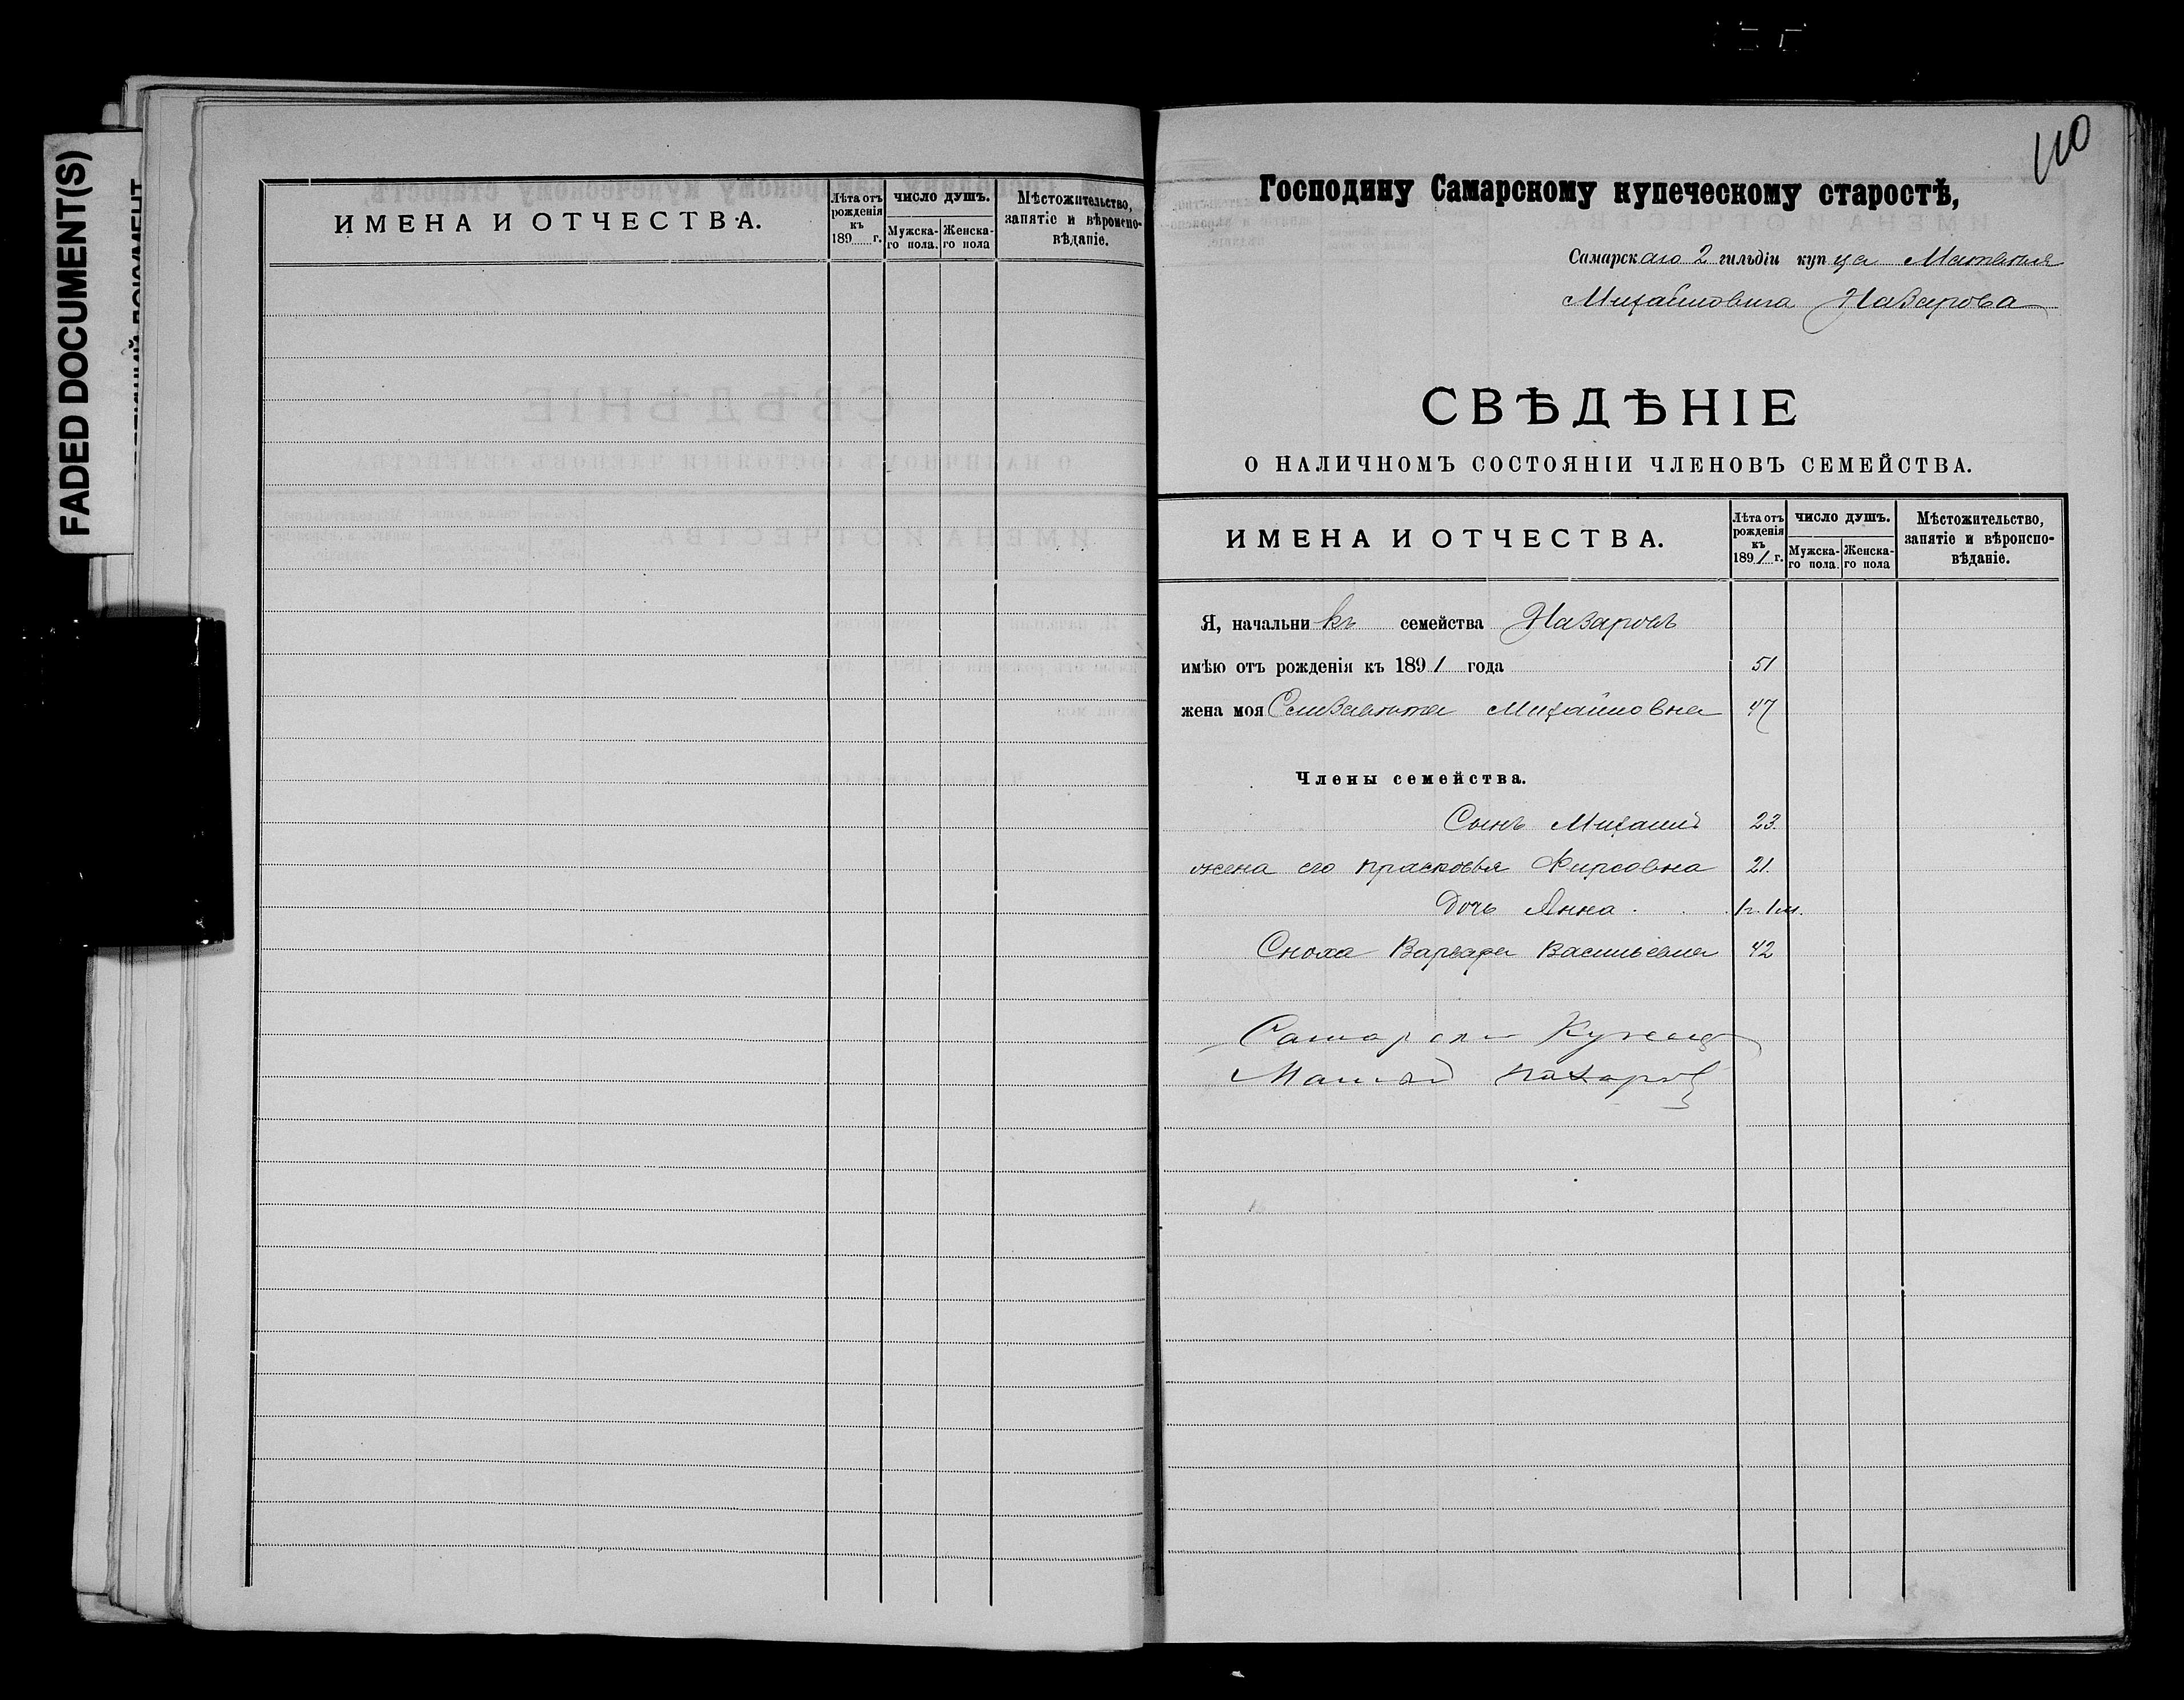 FADED DOCUMENT(S)
ИМЕНА И ОТЧЕСТВА.
Лѣта отъ рожденія къ 189 г.
ЧИСЛО ДУШЪ.
Мужска-го пола.
Женска-го пола
Мѣстожительство, запятіе и вѣроиспо-вѣданіе.
110
Господину Самарскому купеческому старостѣ,
Самарскаго 2 гильдіи купца Матвѣя
Михайловича Назарова
СВѢДѢНІЕ
О НАЛИЧНОМЪ СОСТОЯНІИ ЧЛЕНОВЪ СЕМЕЙСТВА.
ИМЕНА И ОТЧЕСТВА.
Лѣта отъ рожденія къ 1891 г.
ЧИСЛО ДУШЪ.
Мужска-го пола.
Женска-го пола
Мѣстожительство, запятіе и вѣроиспо-вѣданіе.
Я, начальникъ семейства Назаровъ
имѣю отъ рожденія къ 1891 года 51
жена моя Михайловна 47
Члены семейства.
Сынъ Михаилъ 23.
жена его Прасковья Фирсовна 21.
Дочь Анна 1г. 1м.
Сноха Варвара Васильевна 42
Купецъ
Назаровъ